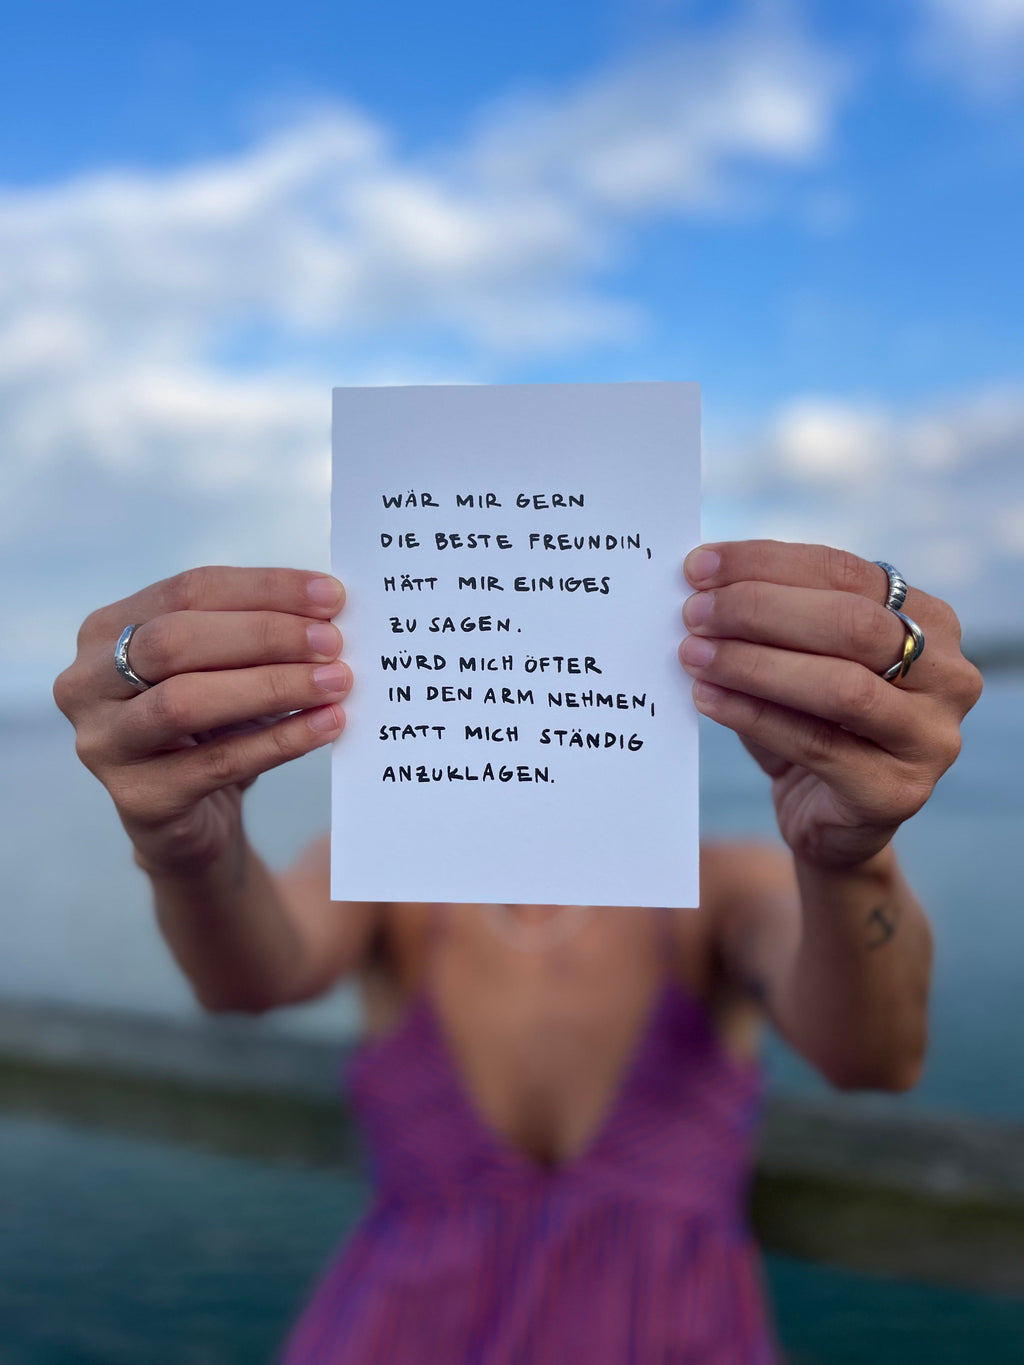 WÄR MIR GERN
DIE BESTE FREUNDIN,
HÄTT MIR EINIGES
ZU SAGEN.
WÜRD MICH ÖFTER
IN DEN ARM NEHMEN,
STATT MICH STÄNDIG
ANZUKLAGEN.